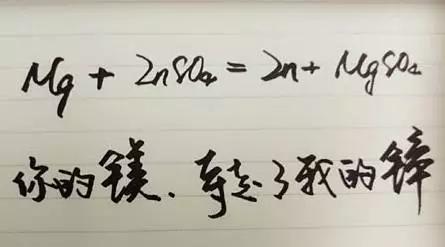 Mg + ZnSO4 = Zn + MgSO4
你的镁、夺走了我的锌